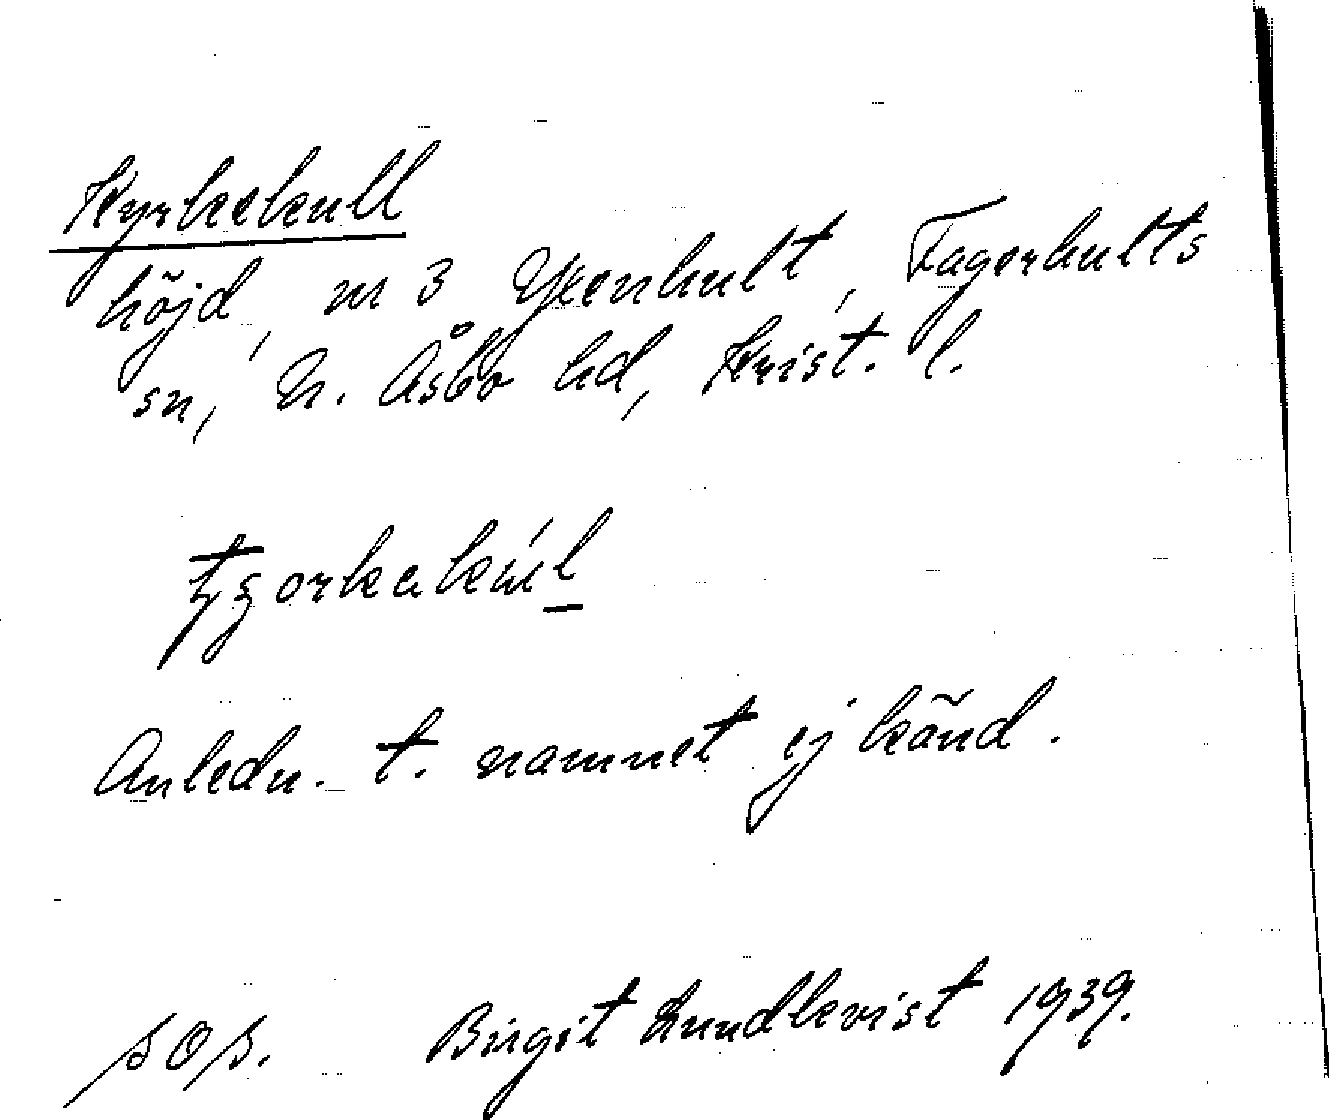 Kyrkekull
höjd, nr 3 Yxenhult, Fagerhults
sn, N. Åsbo hd, Krist. l.
Anledn. t. namnet ej känd.
SOS. Birgit Lundkvist 1939.